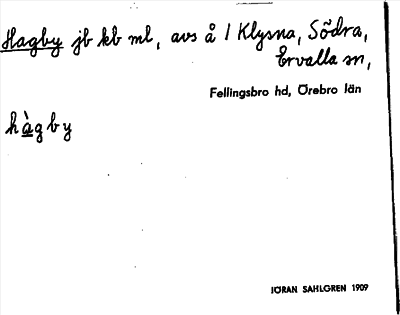 Hagby jb kb ml, avs å / Klysna, Södra,
Ervalla sn,
Fellingsbro hd, Örebro län
hàgby
JÖRAN SAHLGREN 1909